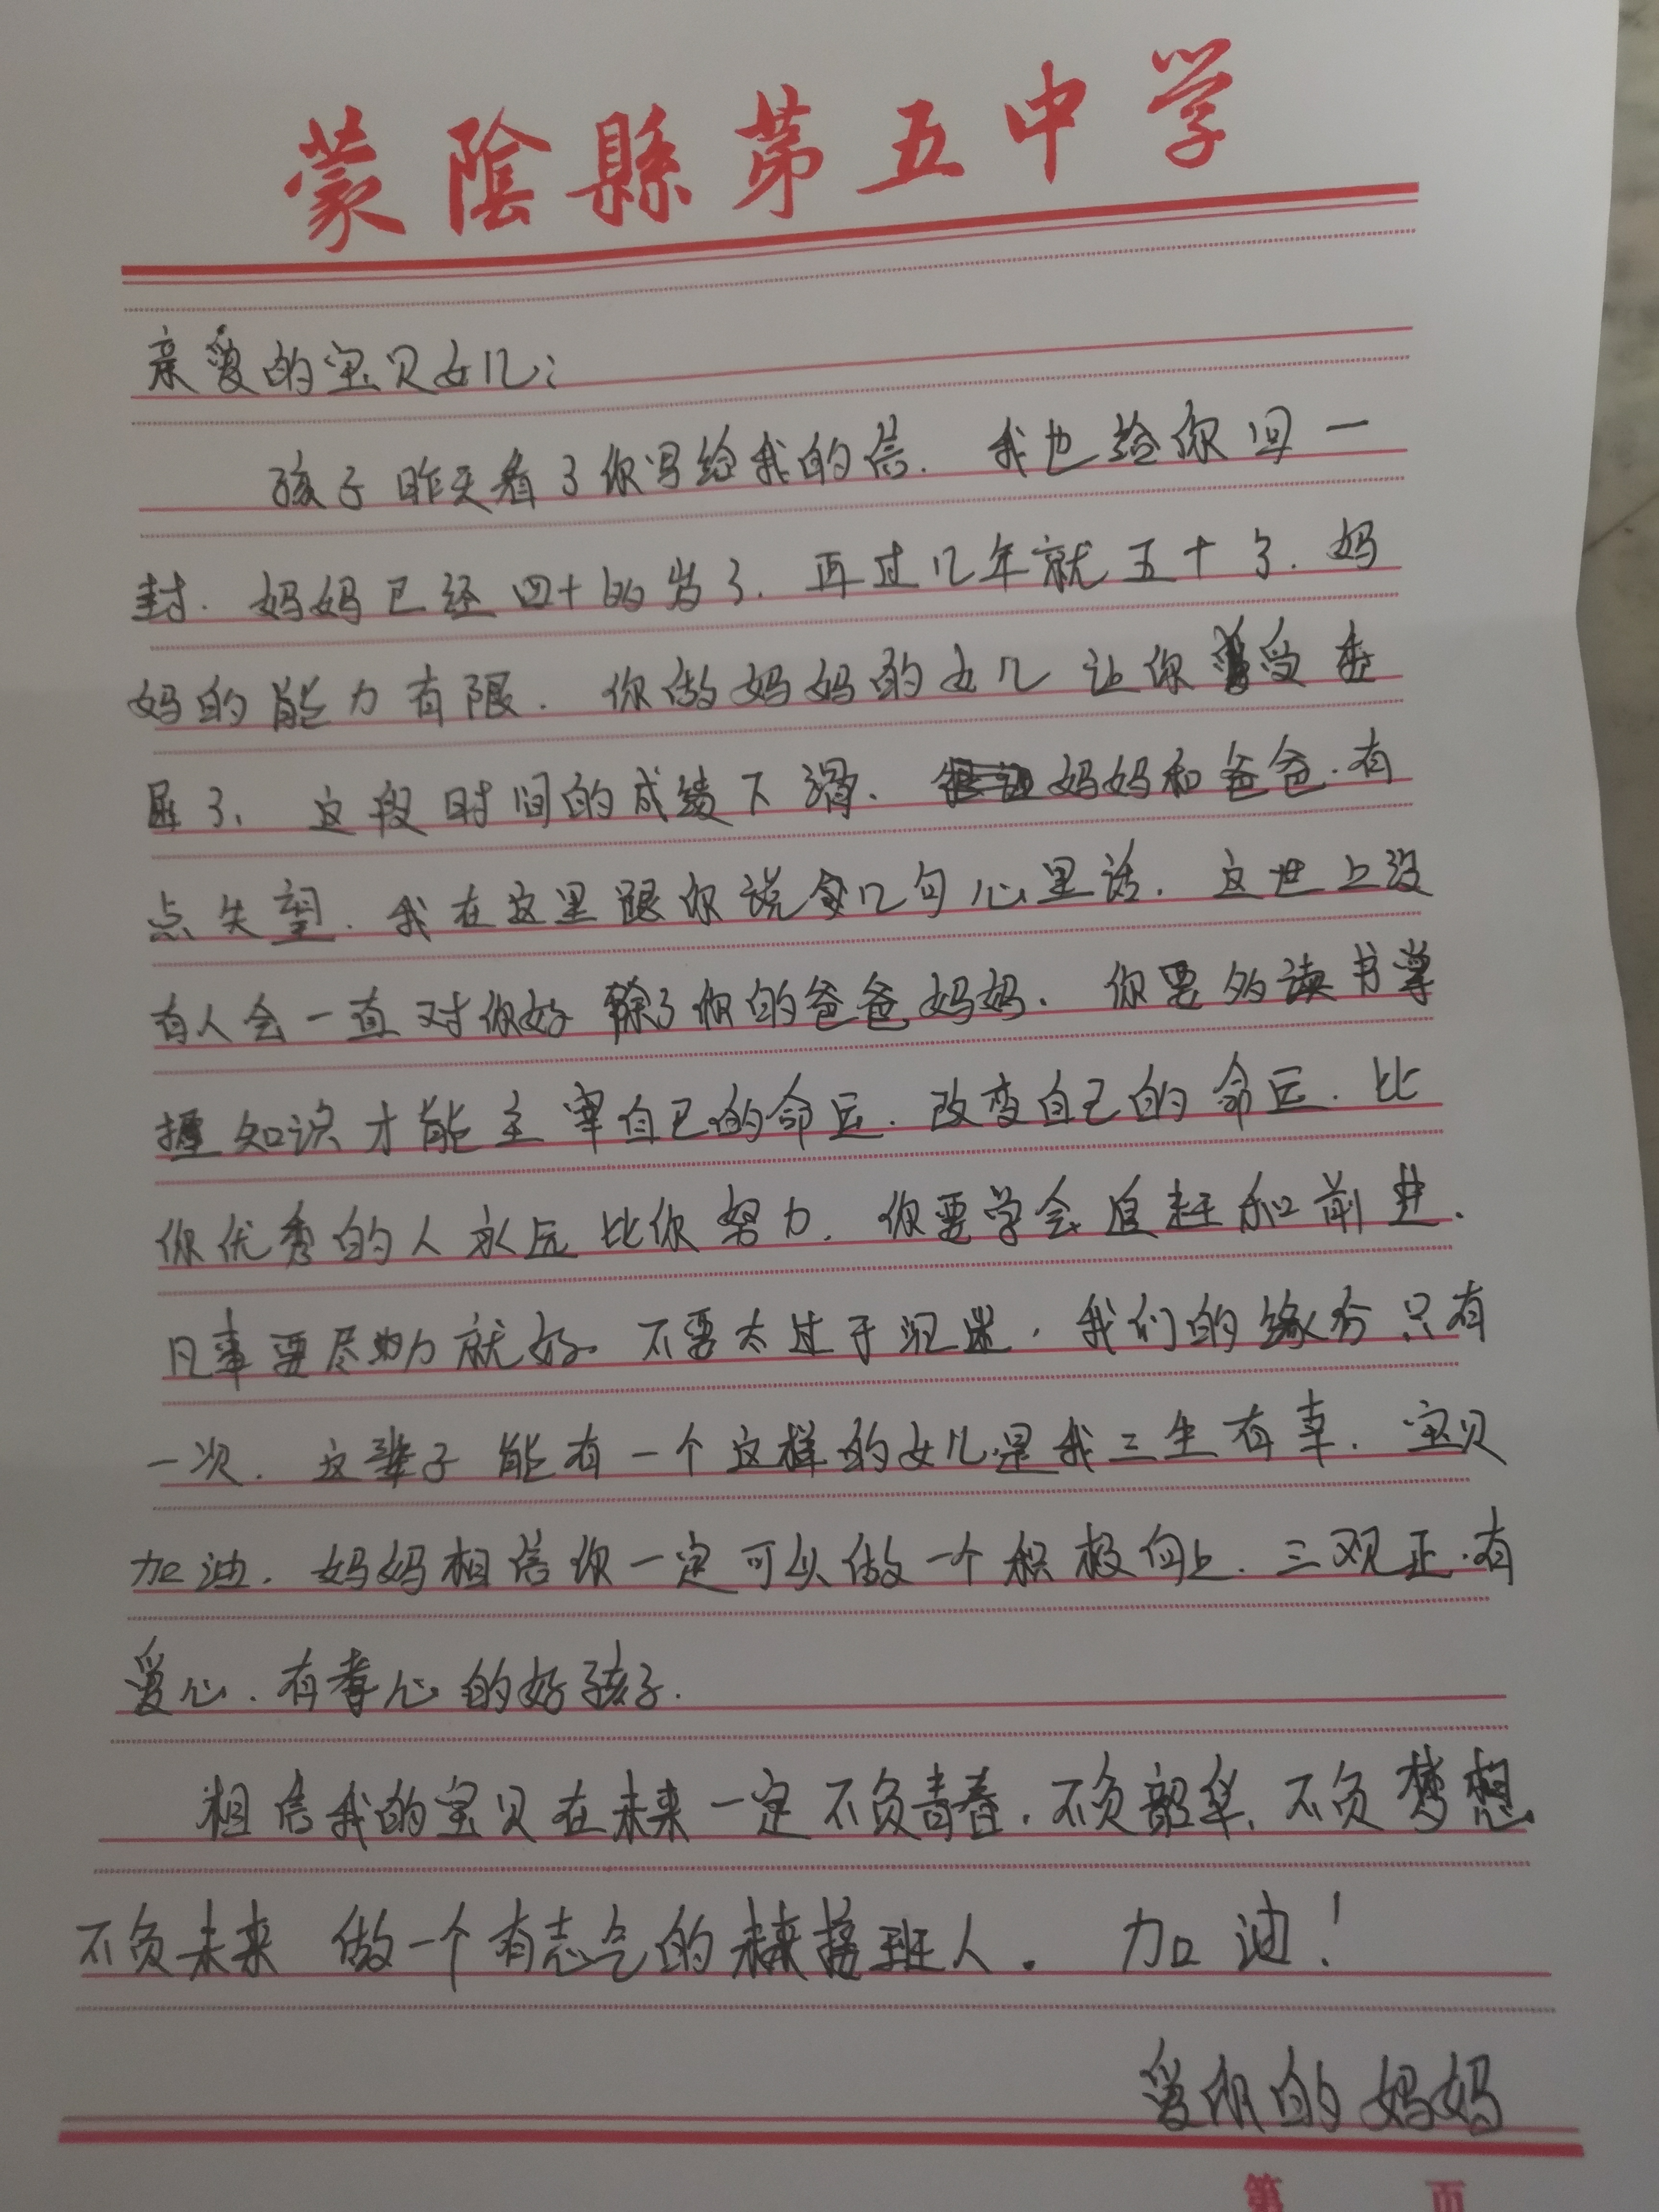 蒙陰縣第五中学
亲爱的宝贝女儿：
孩子昨天看了你写给我的信.我也给你回一
封.妈妈已经四十的岁了.再过几年就五十了.妈
妈的能力有限.你做妈妈的女儿让你受委
屈了、这段时间的成绩下滑、妈妈和爸爸.有
点失望.我在这里跟你说几句心里话.这世上没
有人会一直对你好除了你的爸爸妈妈.你要多读书掌
握知识才能主宰自己的命运.改变自己的命运.比
你优秀的人永远比你努力.你要学会追赶和前进.
凡事要尽力就好.不要太过于沉迷.我们的缘分只有
一次.这辈子能有一个这样的女儿是我三生有幸.宝贝
加油.妈妈相信你一定可以做一个积极向上.三观正.有
爱心.有孝心的好孩子.
相信我的宝贝在未来一定不负青春.不负韶华、不负梦想
不负未来 做一个有志气的未来接班人. 加油！
爱你的妈妈
第 页